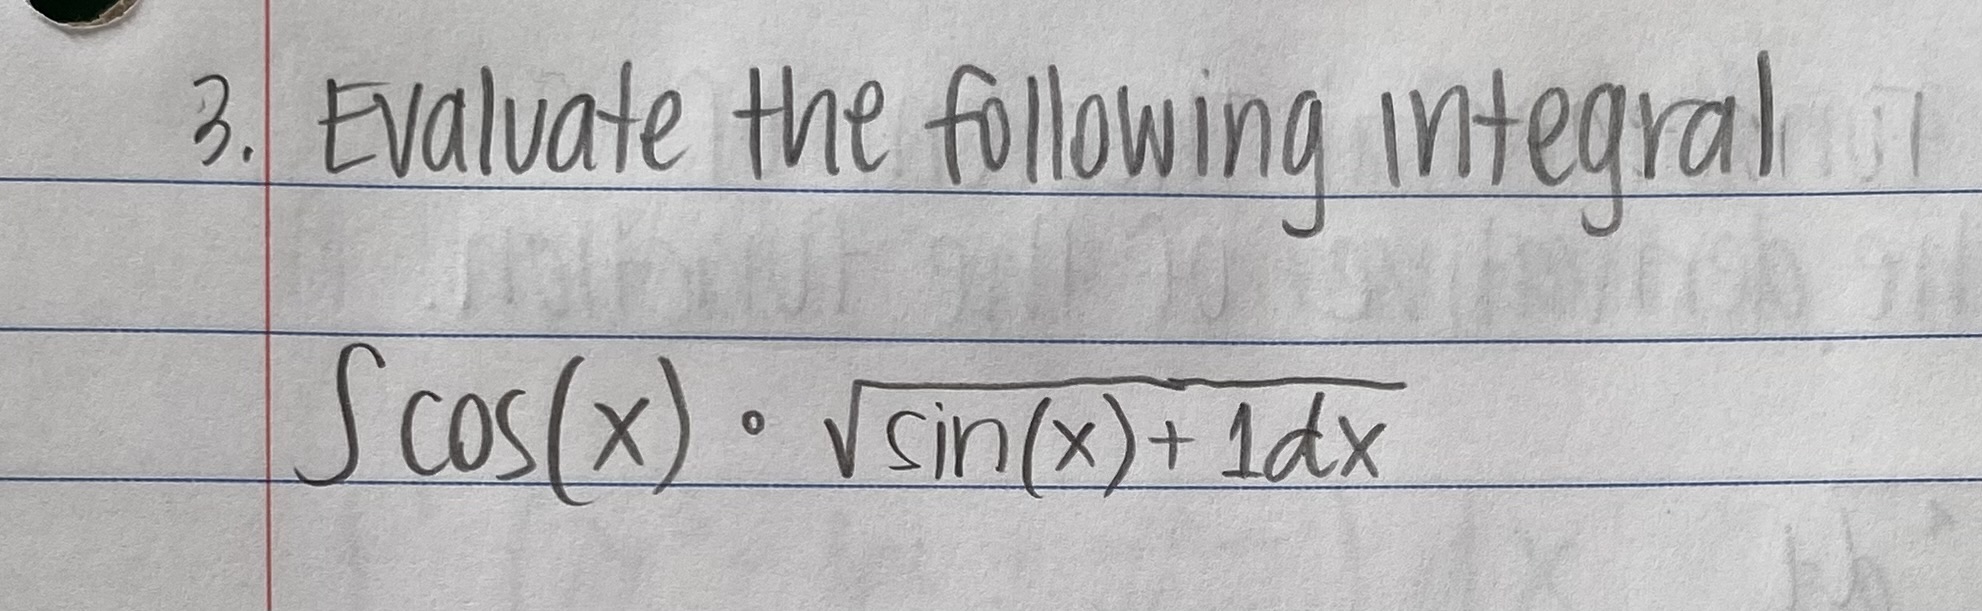 3. Evaluate the following integral
∫cos(x) · √sin(x)+1dx